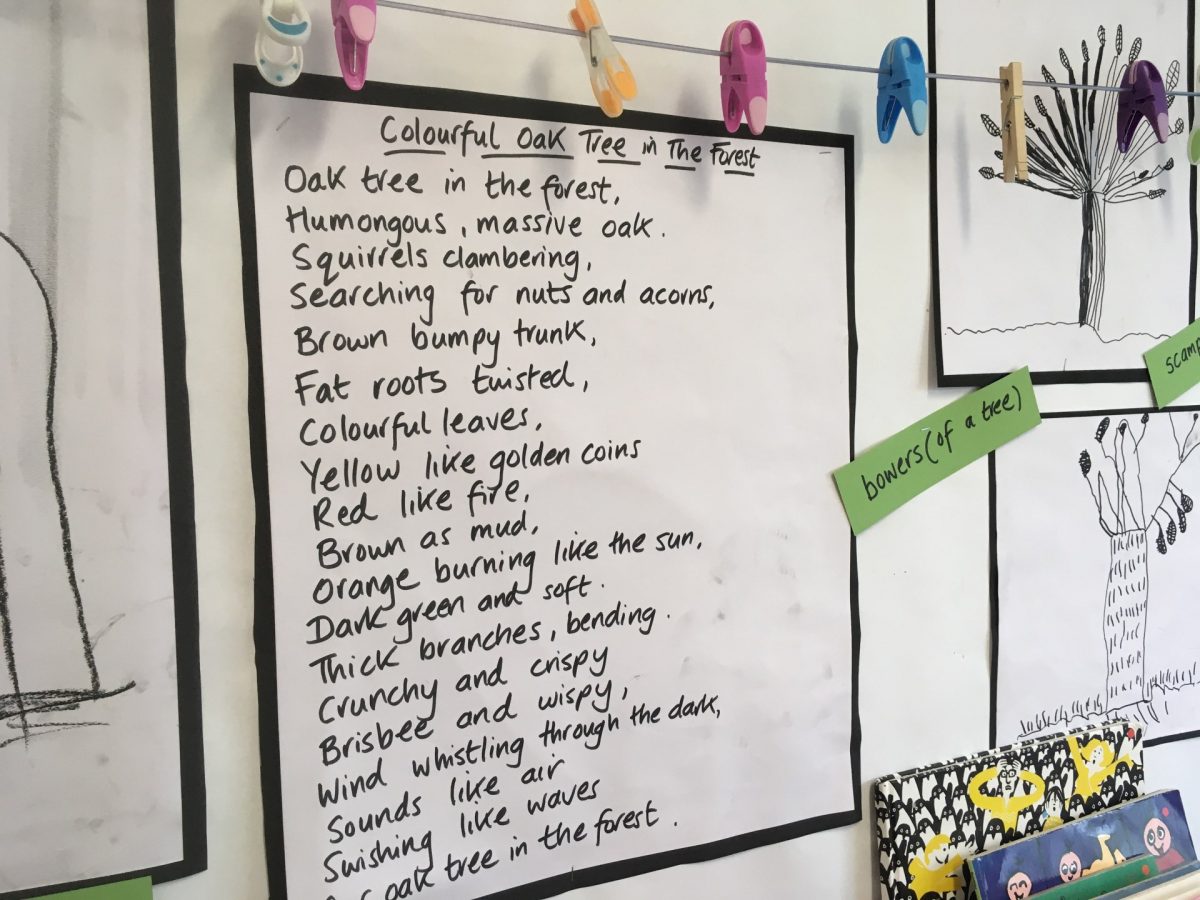 Colourful Oak Tree in The Forest
Oak tree in the forest,
Humongous, massive oak.
Squirrels clambering,
Searching for nuts and acorns,
Brown bumpy trunk,
Fat roots twisted,
Colourful leaves,
Yellow like golden coins
Red like fire,
Brown as mud,
Orange burning like the sun,
Dark green and soft.
Thick branches, bending.
Crunchy and crispy
Brisbee and wispy,
Wind whistling through the dark,
Sounds like air
Swishing like waves
oak tree in the forest.
bowers (of a tree)